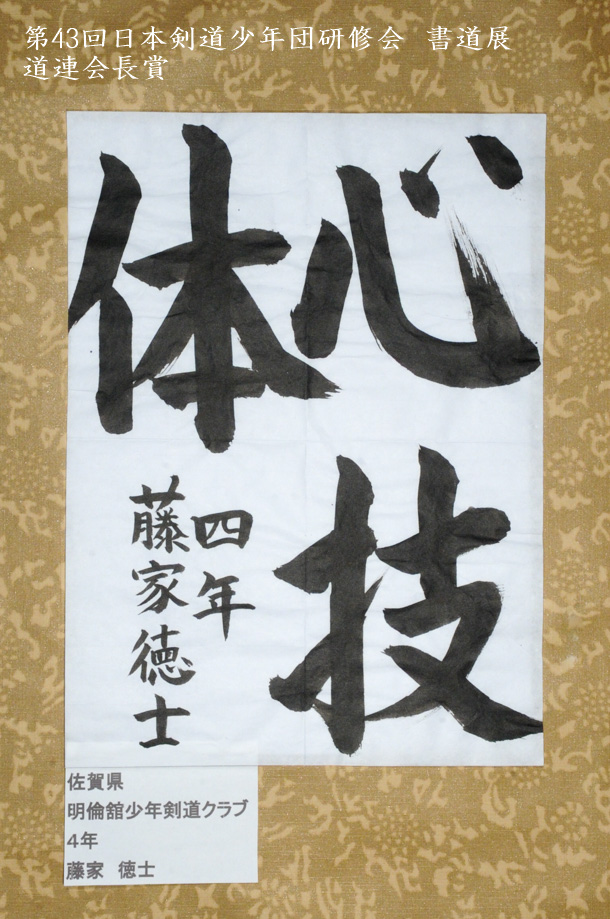 第43回日本剣道少年団研修会　書道展
道連会長賞
心技
体
四年
藤家徳士
佐賀県
明倫舘少年剣道クラブ
４年
藤家　徳士